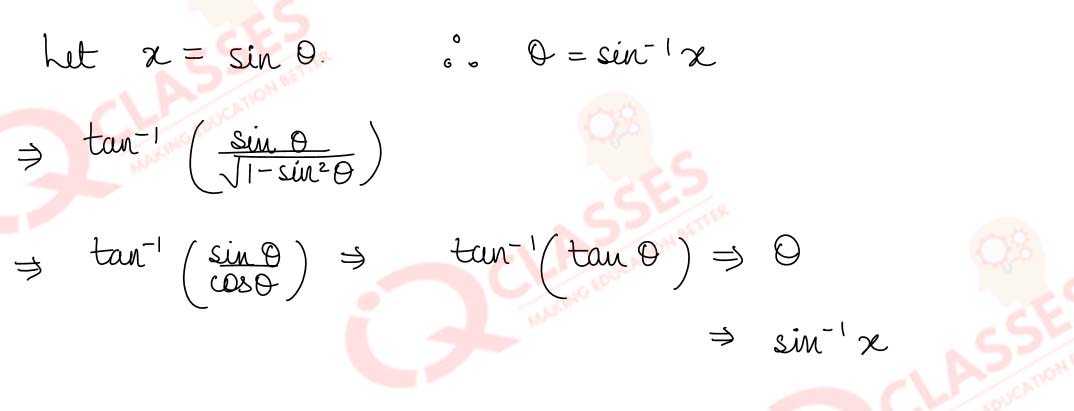 Let x = sin θ. ∴ θ = sin⁻¹ x
⇒ tan⁻¹ (sin θ / √1 - sin² θ)
⇒ tan⁻¹ (sin θ / cos θ) ⇒ tan⁻¹ (tan θ) ⇒ θ
⇒ sin⁻¹ x
IQ CLASSES
MAKING EDUCATION BETTER
IQ CLASSES
MAKING EDUCATION BETTER
CLASSES
EDUCATION